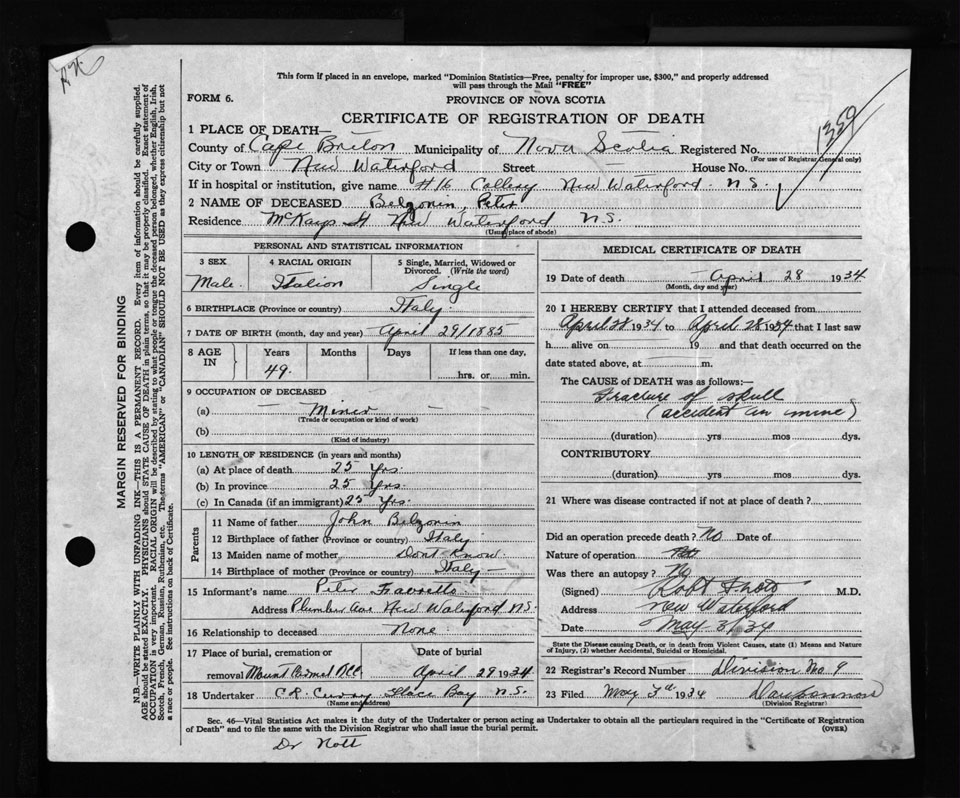 This form if placed in an envelope, marked "Dominion Statistics—Free, penalty for improper use, $300," and properly addressed
will pass through the Mail "FREE"
FORM 6.
PROVINCE OF NOVA SCOTIA
CERTIFICATE OF REGISTRATION OF DEATH
1359
1 PLACE OF DEATH—
County of Cape Breton Municipality of Nova Scotia Registered No.
(For use of Registrar General only)
City or Town New Waterford Street House No.
If in hospital or institution, give name #16 Collery New Waterford. N.S.
2 NAME OF DECEASED Belzonin, Peter
Residence McKays St New Waterford N.S.
(Usual place of abode)
PERSONAL AND STATISTICAL INFORMATION
3 SEX Male.
4 RACIAL ORIGIN Italion
5 Single, Married, Widowed or Divorced. (Write the word) Single
6 BIRTHPLACE (Province or country) Italy.
7 DATE OF BIRTH (month, day and year) April 29/1885
8 AGE IN Years Months Days If less than one day,
49. hrs. or min.
9 OCCUPATION OF DECEASED
(a) — Miner —
(Trade or occupation or kind of work)
(b)
(Kind of industry)
10 LENGTH OF RESIDENCE (in years and months)
(a) At place of death 25 Yrs.
(b) In province 25 Yrs.
(c) In Canada (if an immigrant) 25 Yrs.
Parents
11 Name of father John Belzonin
12 Birthplace of father (Province or country) Italy
13 Maiden name of mother Dont Know.
14 Birthplace of mother (Province or country) Italy —
15 Informant's name Peter Favretto
Address Plumber Ave New Waterford N.S.
16 Relationship to deceased None.
17 Place of burial, cremation or removal Mount Carmel RCC
Date of burial April 29 1934
18 Undertaker C.R. Curray Glace Bay N.S.
(Name and address)
MEDICAL CERTIFICATE OF DEATH
19 Date of death April 28 1934
(Month, day and year)
20 I HEREBY CERTIFY that I attended deceased from
April 28 1934 to April 28 1934 that I last saw
h alive on 19 and that death occurred on the
date stated above, at m.
The CAUSE OF DEATH was as follows:—
Fracture of skull
(accident in mine)
(duration) yrs mos dys.
CONTRIBUTORY
(duration) yrs mos dys.
21 Where was disease contracted if not at place of death?
Did an operation precede death? No Date of
Nature of operation
Was there an autopsy? No
(Signed) Robt M.D.
Address New Waterford
Date May 3/34
State the Disease causing Death, or in death from Violent Causes, state (1) Means and Nature
of Injury, (2) whether Accidental, Suicidal or Homicidal.
22 Registrar's Record Number Division No 9
23 Filed May 3rd 1934
(Division Registrar)
Sec. 46—Vital Statistics Act makes it the duty of the Undertaker or person acting as Undertaker to obtain all the particulars required in the "Certificate of Registration
of Death" and to file the same with the Division Registrar who shall issue the burial permit.
(OVER)
Dr Nott
MARGIN RESERVED FOR BINDING
N.B.—WRITE PLAINLY WITH UNFADING INK—THIS IS A PERMANENT RECORD. Every item of information should be carefully supplied.
AGE should be stated EXACTLY. PHYSICIANS should STATE CAUSE OF DEATH in plain terms, so that it may be properly classified. Exact statement of
OCCUPATION is very important. RACIAL ORIGIN will be described by stating to what people or tongue the deceased person belonged, whether English, Irish,
Scotch, French, German, Russian, Ruthenian, etc. The terms "AMERICAN" or "CANADIAN" SHOULD NOT BE USED as they express citizenship but not
a race or people. See instructions on back of Certificate.